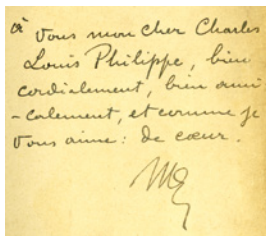 à vous mon cher Charles
Louis Philippe, bien
cordialement, bien ami
-calement, et comme je
vous aime : de cœur.